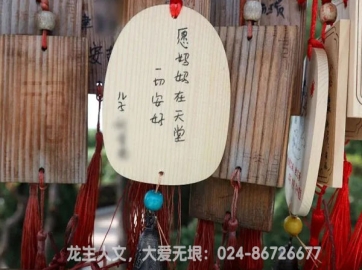 愿妈妈在天堂
一切安好
儿子
龙主人文，大爱无垠：024-86726677